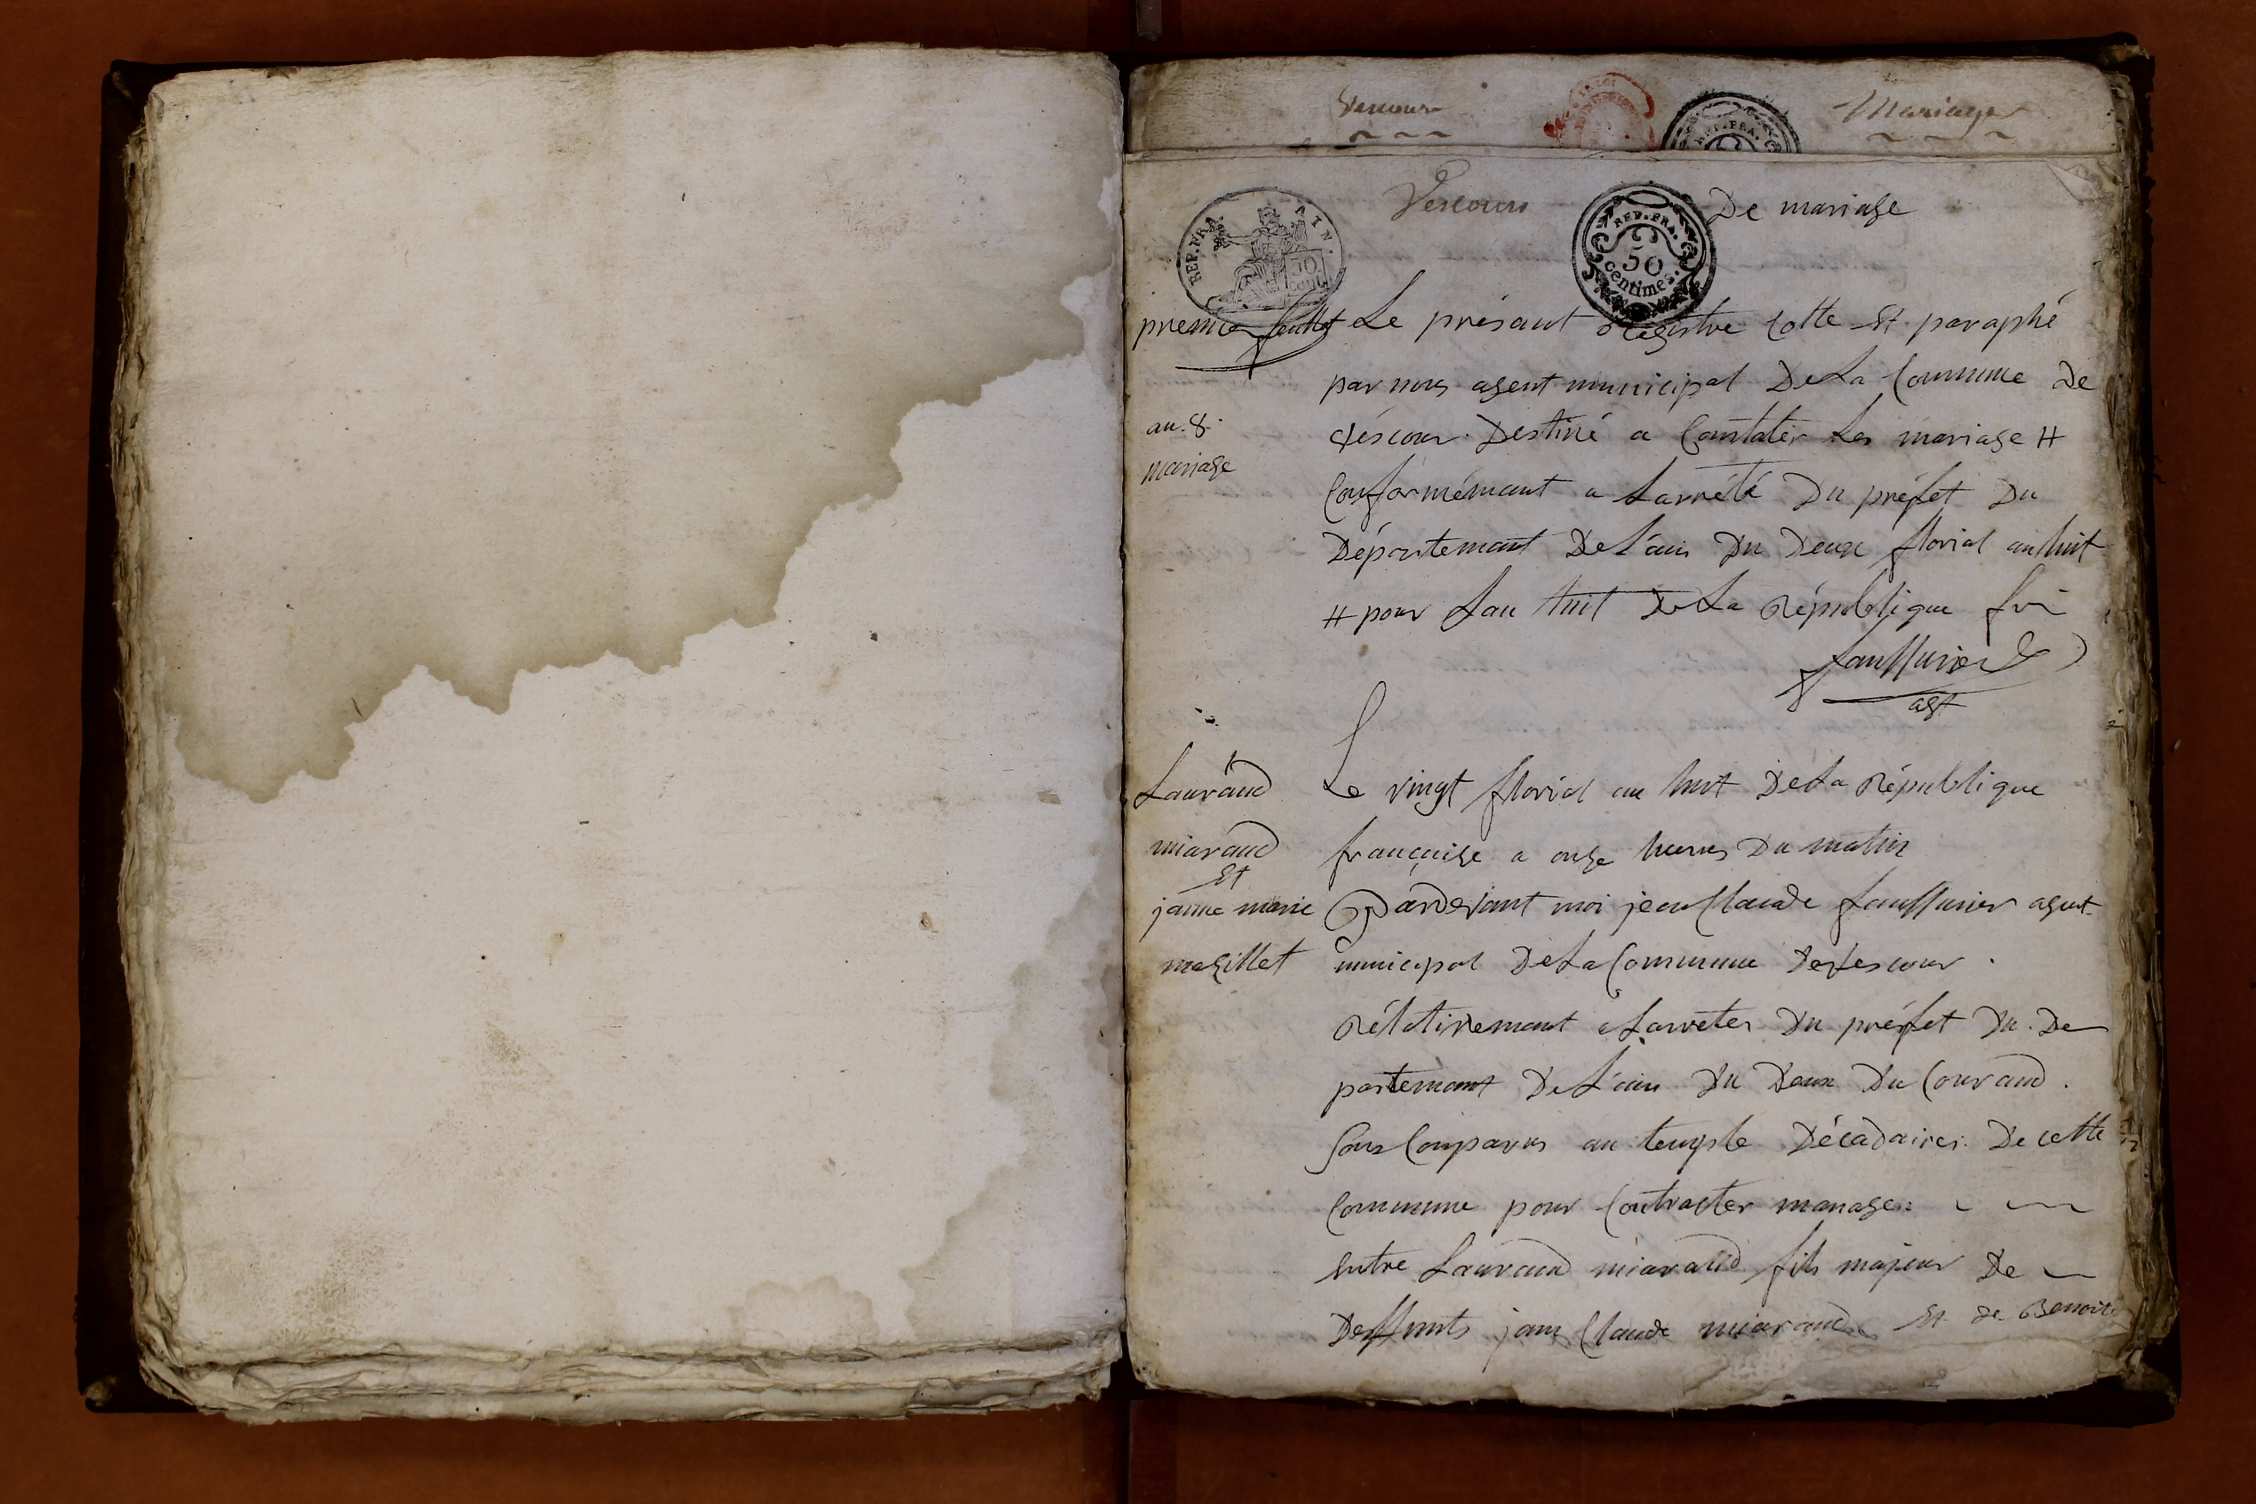 Vescours
Mariages
REP. FRA.
Vescours
De mariage
REP. FRA. AIN.
50 cent.
REP. FRA.
50
centimes
premier feuillet
Le présant régistre Cotte Et paraphé
par nous agent municipal De La Commune de
an. 8.
véscour. Destiné a Constater Les mariage #
mariage
Conformémant a Larrété Du préfet Du
Département De L'ain Du Deux floréal an huit
# pour Lan huit De La République
agt
Le vingt floréal an huit De La République
Laurand
française a onze heures Du matin
miarand
Et
Pardevant moi jean Claude agent
janne marie
municipal De La Commune Devescour.
mazillet
Rélativemant a Larreter Du préfet Du De
partemant De L'ain Du Deux Du Courand.
Sont Comparus au temple Décadaires. De cette
Commune pour Contracter mariage:
Entre Laurand miarand fils majeur De
Deffunts jean Claude miarand Et de Benoite